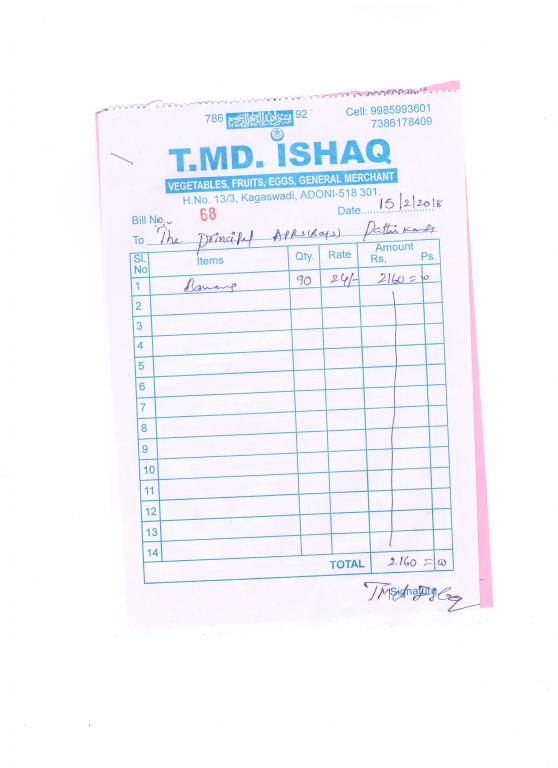 786 بسم الله الرحمن الرحيم 92 Cell: 9985993601
7386178409
T.MD. ISHAQ
VEGETABLES, FRUITS, EGGS, GENERAL MERCHANT
H.No. 13/3, Kagaswadi, ADONI-518 301.
Bill No. 68 Date 15/2/2018
To The Principal APRS(Boys)
Sl. No Items Qty. Rate Amount Rs, Ps.
1 90 24/- 2160 = 00
2
3
4
5
6
7
8
9
10
11
12
13
14
TOTAL 2160 = 00
Signature